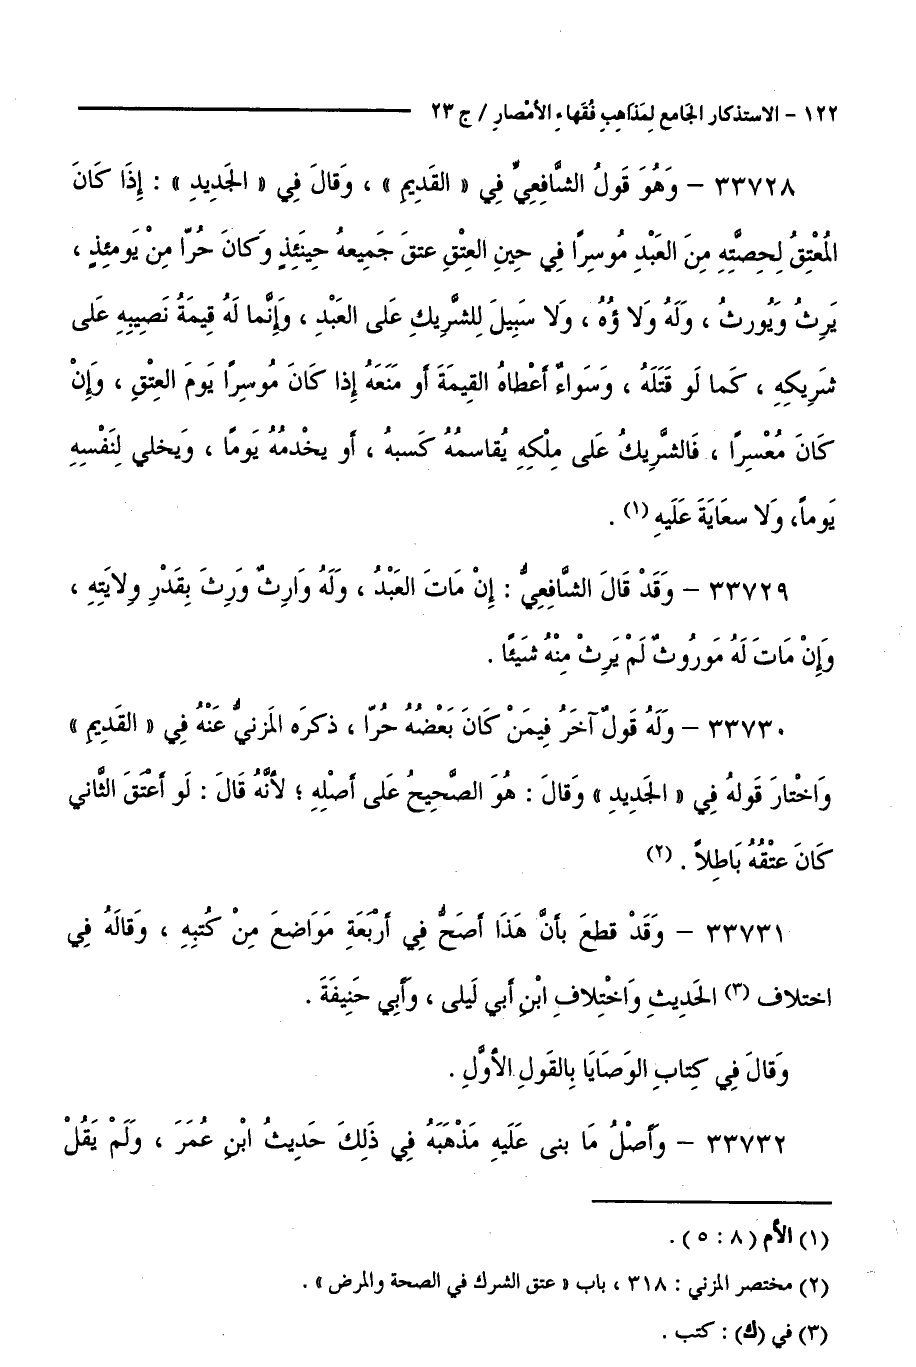 ١٢٢ - الاستذكار الجَامع لِمَذاهِبِ فُقَهاءِ الأمْصارِ / ج ٢٣
٣٣٧٢٨ - وَهُوَ قَولُ الشَّافِعيِّ فِي « القَدِيمِ » ، وَقالَ فِي « الجَدِيدِ » : إِذَا كَانَ
المُعْتِقُ لِحِصَّتِهِ مِنَ العَبْدِ مُوسِرًا فِي حِينِ العِتْقِ عتقَ جَمِيعهُ حِينَئِذٍ وَكانَ حُرّا مِنْ يَومئِذٍ ،
يَرِثُ وَيُورثُ ، وَلَهُ وَلا ؤُهُ ، وَلا سَبِيلَ لِلشَّرِيكِ عَلى العَبْدِ ، وَإِنَّما لَهُ قِيمَةُ نَصِيبِهِ عَلى
شَرِيكِهِ ، كَما لَو قَتَلَهُ ، وَسَواءٌ أَعْطاهُ القِيمَةَ أو مَنَعَهُ إِذا كَانَ مُوسِرًا يَومَ العِتْقِ ، وَإِنْ
كَانَ مُعْسِرًا ، فَالشَّرِيكُ عَلى مِلْكِهِ يُقاسمُهُ كَسبهُ ، أو يخْدمُهُ يَومًا ، وَيخلي لِنَفْسِهِ
يَوماً، وَلا سعَايَةَ عَلَيهِ (١) .
٣٣٧٢٩ - وَقَدْ قَالَ الشَّافِعِيُّ : إِنْ مَاتَ العَبْدُ ، وَلَهُ وَارِثٌ وَرِثَ بِقَدْرِ وِلايَتِهِ ،
وَإِنْ مَاتَ لَهُ مَورُوثٌ لَمْ يَرِثْ مِنْهُ شَيئًا .
٣٣٧٣٠ - وَلَهُ قَولٌ آخَرُ فِيمَنْ كَانَ بَعْضُهُ حُرّا ، ذكرَه المَزنيُّ عَنْهُ فِي « القَدِيمِ »
وَاخْتارَ قَولهُ فِي « الجَدِيدِ » وَقالَ : هُوَ الصَّحِيحُ عَلى أصْلِهِ ؛ لأنَّهُ قَالَ : لَو أَعْتَقَ الثَّاني
كَانَ عتْقُهُ بَاطِلاً . (٢)
٣٣٧٣١ - وَقَدْ قطعَ بأنَّ هَذَا أصَحُّ فِي أرْبَعَةِ مَوَاضعَ مِنْ كُتبِهِ ، وَقالَهُ فِي
اختلاف (٣) الحَدِيثِ وَاخْتِلافِ ابْنِ أبي لَيلى ، وَأَبِي حَنِيفَةَ .
وَقالَ فِي كِتابِ الوَصَايَا بِالقَولِ الأوَّلِ .
٣٣٧٣٢ - وَأَصْلُ مَا بنى عَلَيهِ مَذْهَبَهُ فِي ذَلِكَ حَدِيثُ ابْنِ عُمَرَ ، وَلَمْ يَقُلْ
(١) الأم ( ٨ : ٥ ) .
(٢) مختصر المزني : ٣١٨ ، باب « عتق الشرك في الصحة والمرض » .
(٣) في (ك) : كتب .